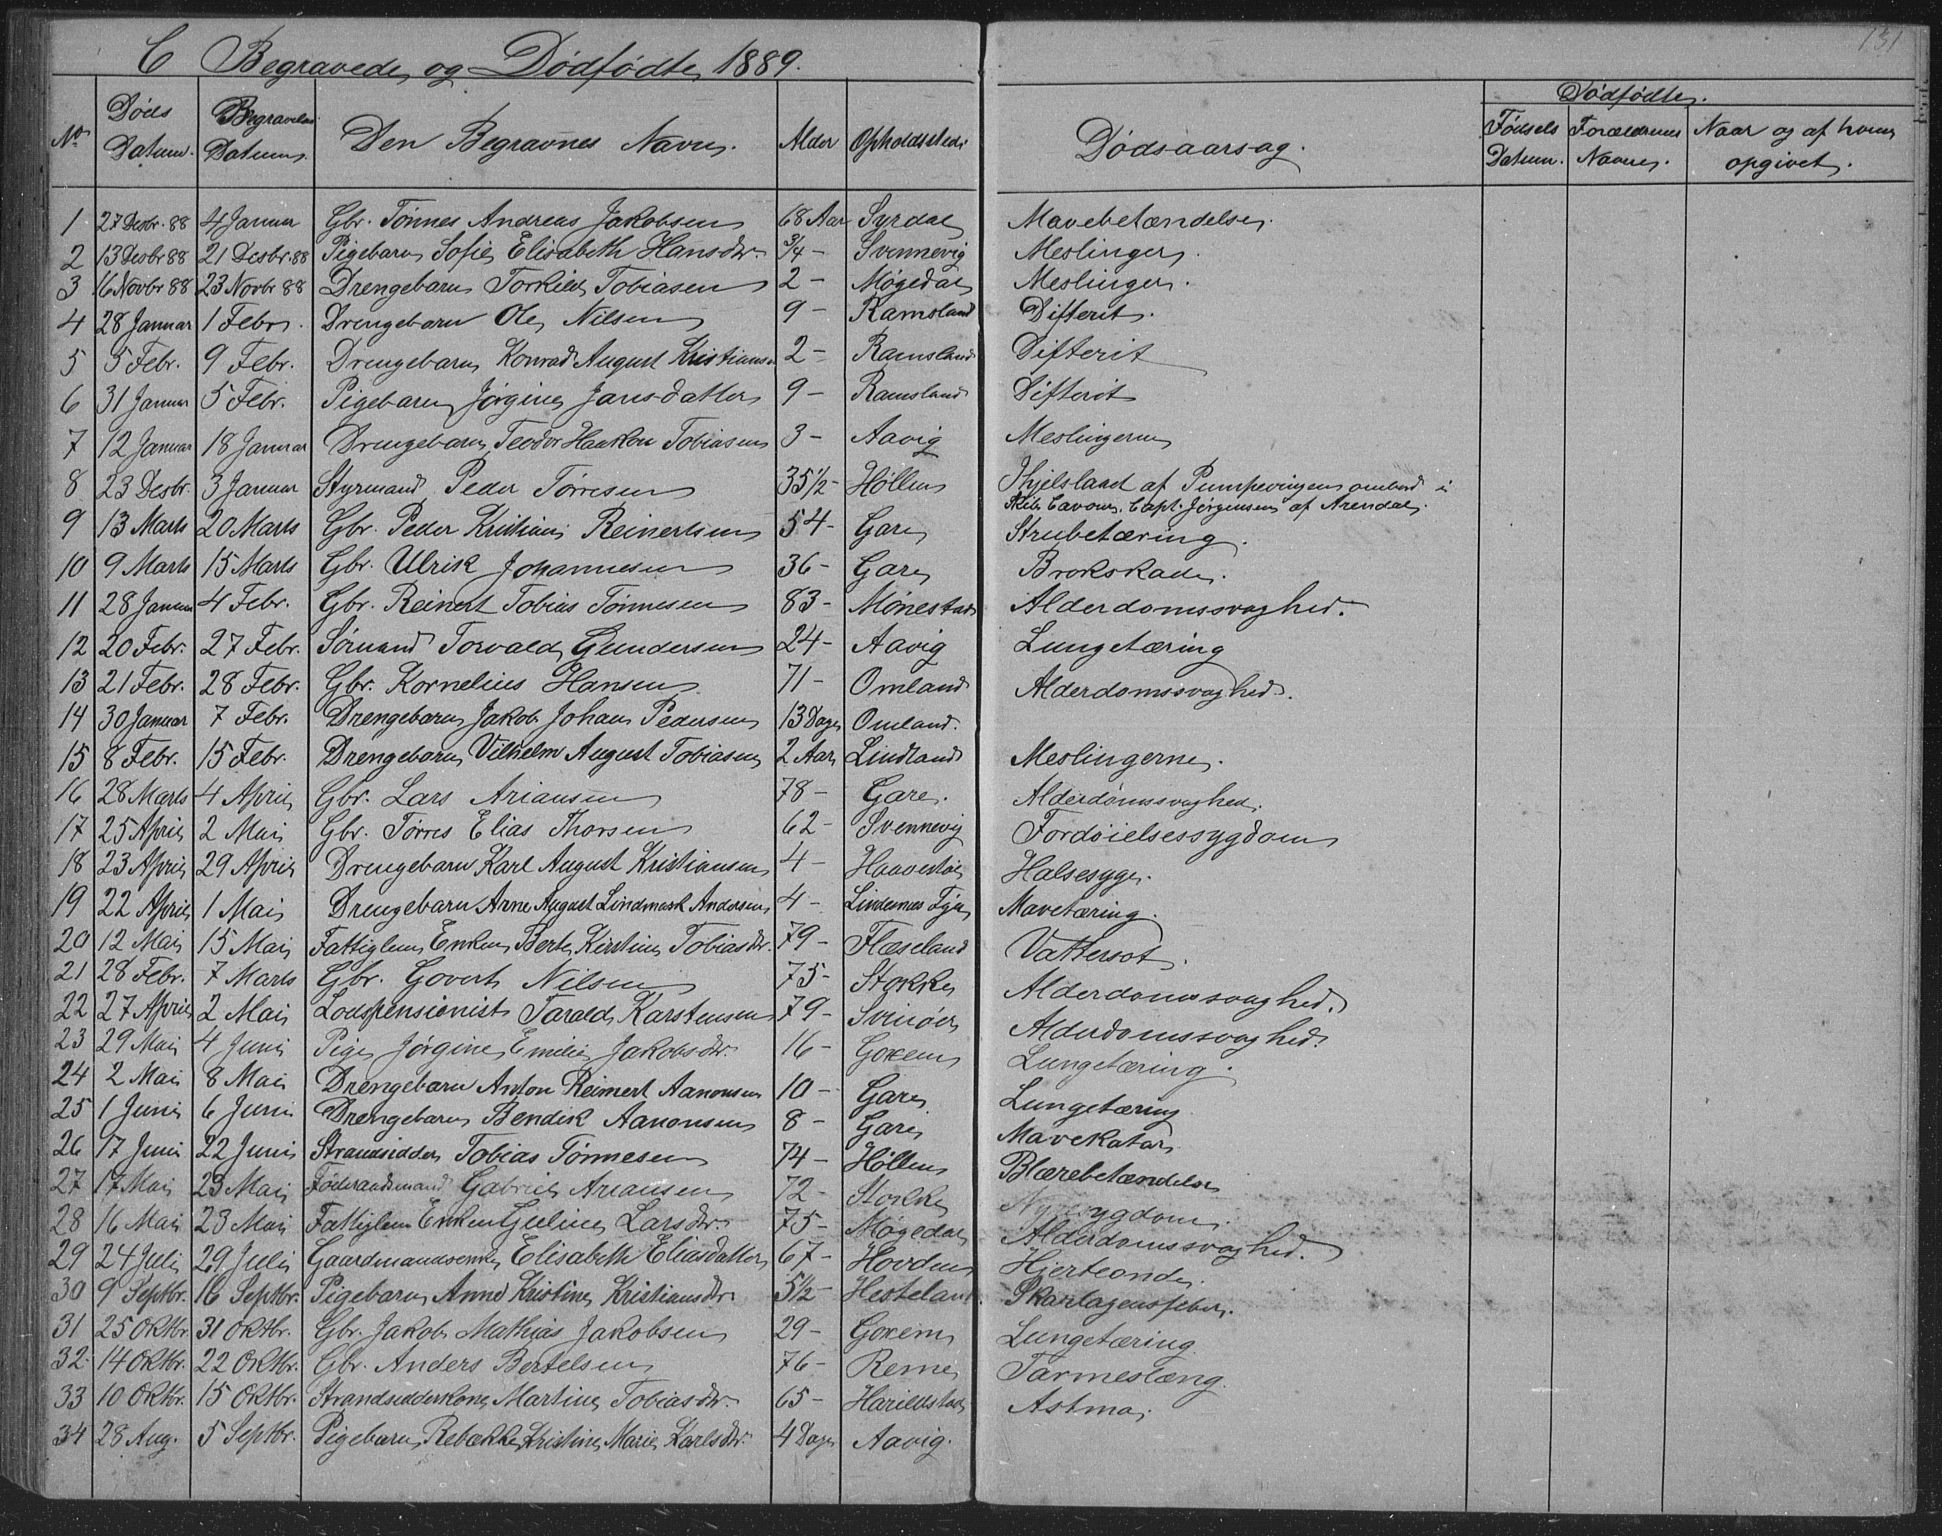 131
C Begravede og Dødfødte 1889.
No. Døds Datum. Begravelses Datum. Den Begravnes Navn. Alder Opholdssted. Dødsaarsag. Dødfødte.
Fødsels Datum. Forældrenes Navne. Naar og af hvem opgivet.
1 27 Desbr. 88 4 Januar Gbr. Tønnes Andreas Jakobsen 68 Aar Syrdal Mavebetændelse.
2 13 Desbr 88 21 Desbr. 88 Pigebarn Sofie Elisabeth Hansdtr. 3/4 - Svennevig Meslinger.
3 16 Novbr 88 23 Novbr 88 Drengebarn Torkild Tobiasen 2 - Møgedal Meslinger.
4 28 Januar 1 Febr. Drengebarn Ole Nilsen 9 - Ramsland Difterit.
5 5 Febr. 9 Febr. Drengebarn Konrad August Kristiansen 2 - Ramsland Difterit
6 31 Januar 5 Febr. Pigebarn Jørgine Jansdatter 9 - Ramsland Difterit
7 12 Januar 18 Januar Drengebarn Teodor Haakon Tobiasen 3 - Aavig Meslingerne
8 23 Desbr. 3 Januar Styrmand Peder Tørresen 35 1/2 - Høllen Ihjelslaaet af Pumpevingen ombord i
Skib Cavour, Capt. Jørgensen af Arendal.
9 13 Marts 20 Marts Gbr. Peder Kristian Reinertsen 54 - Gare Strubetæring.
10 9 Marts 15 Marts Gbr. Ulrik Johannesen 36 - Gare Brokskade.
11 28 Januar 4 Febr. Gbr. Reinert Tobias Tønnesen 83 - Mønestad Alderdomssvaghed.
12 20 Febr. 27 Febr. Sømand Torvald Gundersen 24 - Aavig Lungetæring
13 21 Febr. 28 Febr. Gbr. Kornelius Hansen 71 - Omland Alderdomssvaghed.
14 30 Januar 7 Febr. Drengebarn Jakob Johan Pedersen 13 Dage Omland.
15 8 Febr. 15 Febr. Drengebarn Vilhelm August Tobiasen 2 Aar Lindland Meslingerne.
16 28 Marts 4 April Gbr. Lars Ariansen 78 - Gare. Alderdomssvaghed.
17 25 April 2 Mai Gbr. Tørres Elias Thorsen 62 - Svennevig Fordøielsessygdom
18 23 April 29 April Drengebarn Karl August Kristiansen 4 - Haavestøl Halsesyge.
19 22 April 1 Mai Drengebarn Arne August Lindmark Andersen 4 - Lindesnes Fyr Mavetæring.
20 12 Mai 15 Mai Fattiglem Enken Berte Kirstine Tobiasdtr. 79 - Flæseland Vattersot.
21 28 Febr. 7 Marts Gbr. Govert Nilsen 75 - Stokke Alderdomssvaghed.
22 27 April 2 Mai Lodspensionist Tarald Karstensen 79 - Svinøer Alderdomssvaghed.
23 29 Mai 4 Juni Pige Jørgine Emilie Jakobsdtr. 16 - Goxem Lungetæring.
24 2 Mai 8 Mai Drengebarn Anton Reinert Aanonsen 10 - Gare Lungetæring
25 1 Juni 6 Juni Drengebarn Bendik Aanonsen 8 - Gare Mavekatar
26 17 Juni 22 Juni Strandsidder Tobias Tønnesen 74 - Høllen Blærebetændelse
27 17 Mai 23 Mai Føderaadsmand Gabriel Ariansen 72 - Stokke Nyresygdom.
28 16 Mai 23 Mai Fattiglem Enken Gjeline Larsdtr. 75 - Møgedal Alderdomssvaghed.
29 24 Juli 29 Juli Gaardmandsenke Elisabeth Eliasdatter 67 - Hovden Hjerteonde.
30 9 Septbr. 16 Septbr. Pigebarn Anne Kristine Kristiansdtr. 5 1/2 - Hesteland Skarlagensfeber.
31 25 Oktbr. 31 Oktbr. Gbr. Jakob Mathias Jakobsen 29 - Goxem Lungetæring.
32 14 Oktbr. 22 Oktbr. Gbr. Anders Bertelsen 76 - Reme Tarmeslæng.
33 10 Oktbr. 15 Oktbr. Strandsidderkone Martine Tobiasdtr. 65 - Harildstad Astma.
34 28 Aug. 5 Septbr. Pigebarn Rebække Kristine Marie Karlsdtr. 4 Dage Aavig.